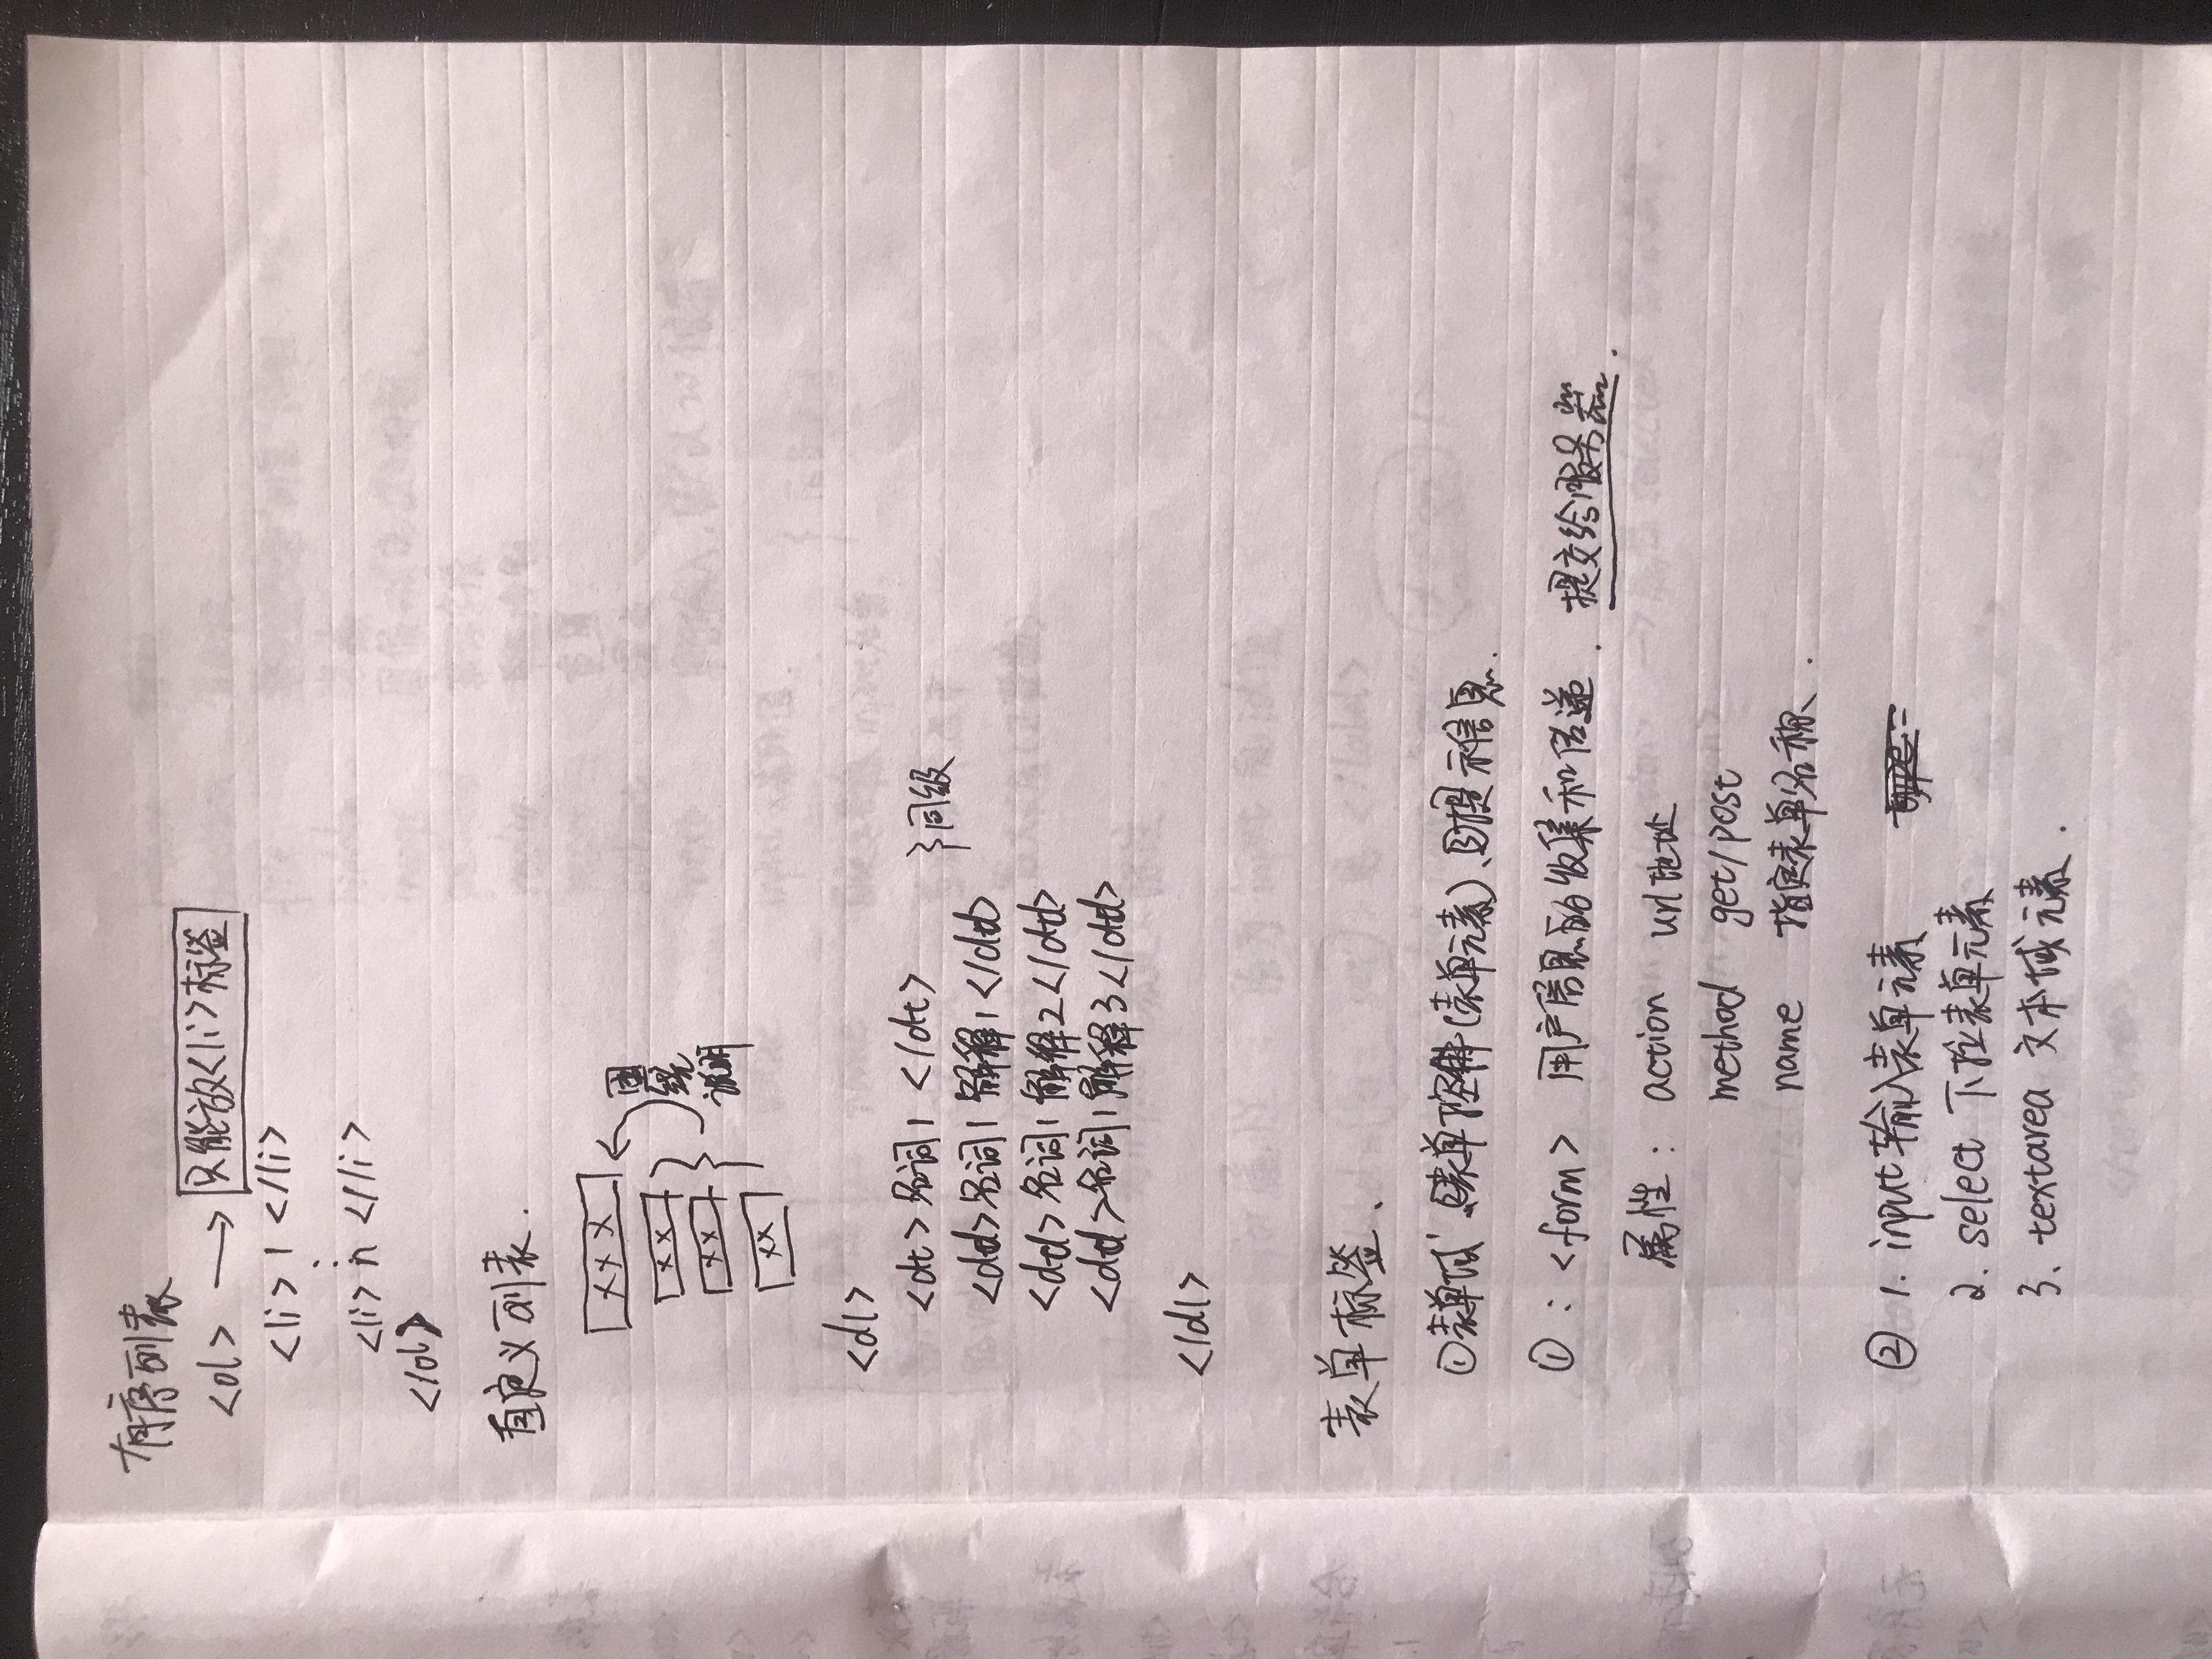 有序列表
<ol> → 只能放<li>标签
<li> 1 </li>
⋮
<li> n </li>
</ol>
自定义列表.
xxx
xx
xx
xx
围绕说明
<dl>
<dt>名词1 </dt> }同级
<dd>名词1 解释1</dd>
<dd>名词1 解释2</dd>
<dd>名词1 解释3</dd>
</dl>
表单标签、
①表单域、②表单控件(表单元素)、③提示信息.
①: <form> 用户信息的收集和传递. 提交给服务器.
属性: action url地址
method get/post
name 指定表单名称.
② 1. input 输入表单元素
2. select 下拉表单元素
3、textarea 文本域元素.